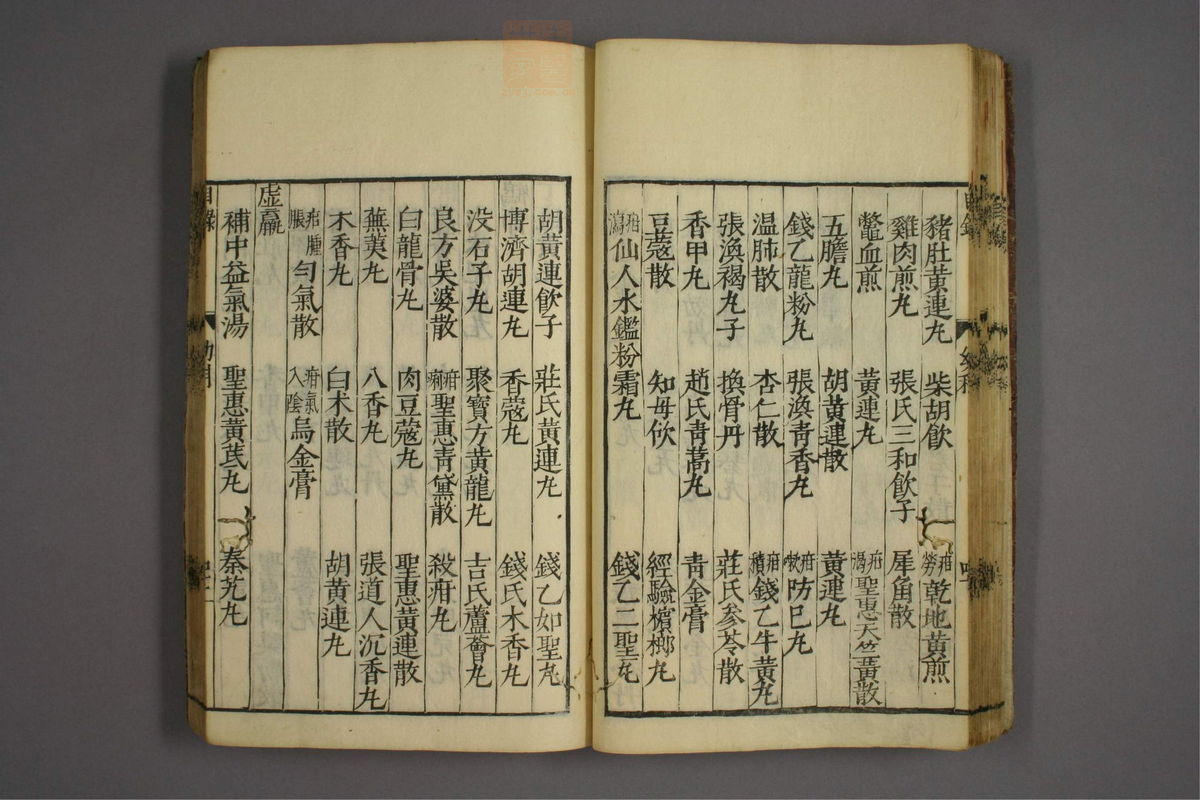 豬肚黃連丸 柴胡飲 疳勞乾地黃煎
雞肉煎丸 張氏三和飲子 犀角散
鱉血煎 黃連丸 疳渴聖惠天竺黃散
五膽丸 胡黃連散 黃連丸
錢乙龍粉丸 張渙青香丸 疳嗽防巳丸
温肺散 杏仁散 疳積錢乙牛黃丸
張渙褐丸子 換骨丹 莊氏參苓散
香甲丸 趙氏青蒿丸 青金膏
豆蔻散 知母飲 經驗檳榔丸
疳瀉仙人水鑑粉霜丸 錢乙二聖丸
胡黃連飲子 莊氏黃連丸 錢乙如聖丸
博濟胡連丸 香蔻丸 錢氏木香丸
没石子丸 聚寶方黃龍丸 吉氏蘆薈丸
良方吳婆散 疳痢聖惠青黛散 殺疳丸
白龍骨丸 肉豆蔻丸 聖惠黃連散
蕪荑丸 八香丸 張道人沉香丸
木香丸 白术散 胡黃連丸
疳腫脹勻氣散 疳氣入陰烏金膏
虛羸
補中益氣湯 聖惠黃芪丸 秦艽丸
目錄